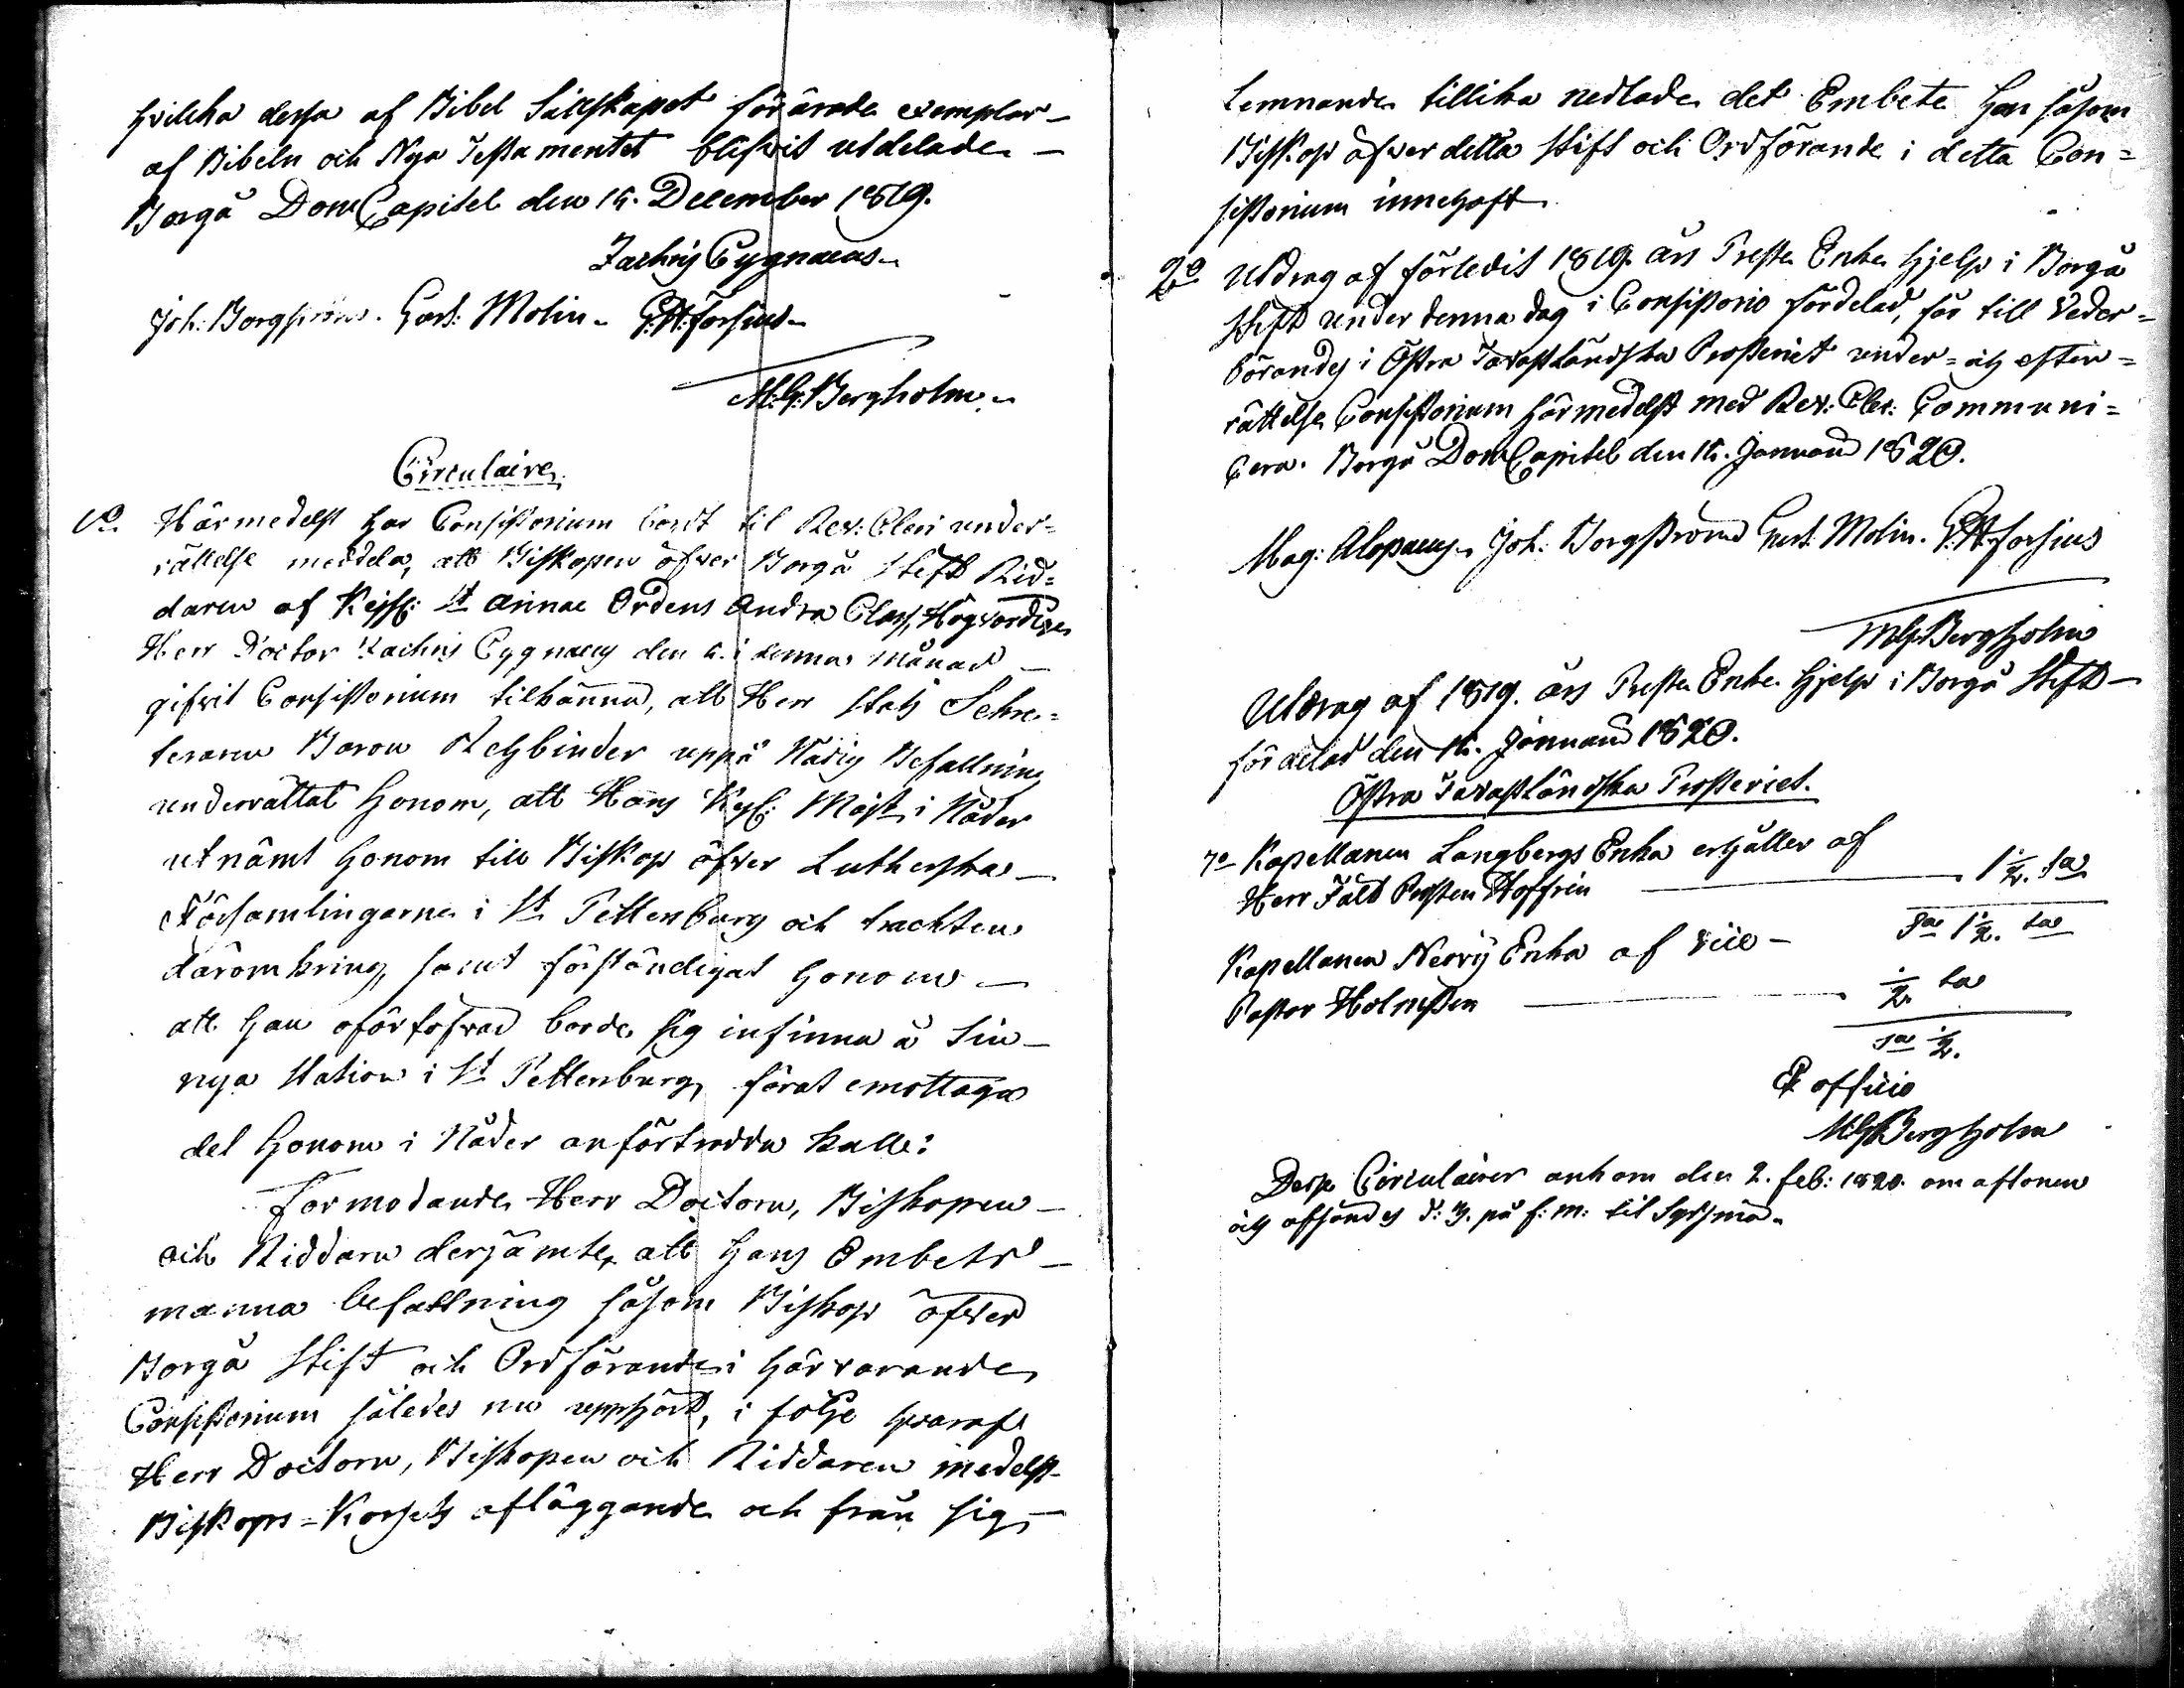 hvilcka dessa af Bibel Sällskapet förärade exemplar
af Bibeln och Nya Testamentet blifvit utdelade
Borgå DomCapitel den 15. December 1819.
Zachris Cygnaeus
Joh: Borgström. Gust: Molin. G:H:Forsius
M:G:Bergholm
Circulaire
1o Härmedelst har Consistorium bordt til Rev: Cleri under=
rättelse meddela, att Biskopen öfver Borgå Stift Rid=
daren af Kejs: St Annae Ordens Andra Class, Högvördige
Herr Doctor Zachris Cygnaeus den 5. i denna månad
gifvit Consistorium tilkänna, att Herr Stats Secre=
teraren Baron Rehbinder uppå Nådig Befallning
underrättat honom, att Hans Kejs: Majst: i Nåder
utnämt honom till Biskop öfver Lutherska
Församlingarne i St Pettersburg och trackten
däromkring, samt förständigat honom
att han oförtöfvad borde sig infinna å sin
nya Station i St Pettersburg, förat emottaga
det honom i Nåder anförtrodda kall:
Formodande Herr Doctorn, Biskopen
och Riddarn derjämte, att hans Embets
manna befattning såsom Biskop öfver
Borgå Stift och Ordförande i härvarande
Consistorium således nu upphört, i följe hvaraf
Herr Doctorn, Biskopen och Riddaren medelst
Biskops=Korsets afläggande och från sig
Lemnande tillika nedlade det Embete han såsom
Biskop öfver detta Stift och Ordförande i detta Con=
sistorium innehaft
2o Utdrag af förledit 1819. års Preste Enke hjelp i Borgå
Stift under denna dag i Consistorio fördelad, får till veder=
börandes i Östra Tavastländska Prosteriet under= och efter=
rättelse Consistorium härmedelst med Rev: Cler: Communi=
cera. Borgå DomCapitel den 15. Januarii 1820.
Mag: Alopaeus Joh: Borgström Gust: Molin. G:H:Forsius
M:G:Bergholm
Utdrag af 1819. års Preste Enke hjelp i Borgå Stift
fördelad den 15. Januarii 1820.
Östra Tavastländska Prosteriet.
7o Kapellanen Langbergs Enka erhåller af
Herr Fält Prosten Hoffrén 1½. ta
Sa 1½. ta
Kapellanen Nervij Enka af Vice
Pastor Holmsten ½ ta
Sa ½.
Ex officio
M:G:Bergholm
Desse Circulairer ankom den 2. feb: 1820. om aftonen
och afsändes d: 3. på f: m: til Sysmä